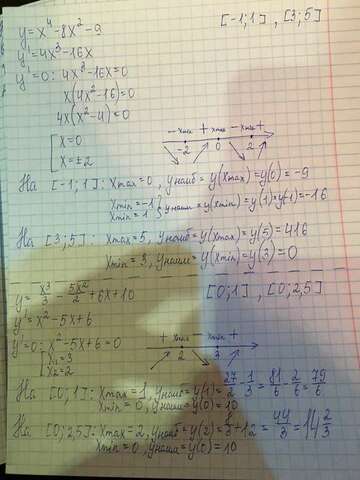 y = x⁴ - 8x² - 9 [-1; 1], [3; 5]
y' = 4x³ - 16x
y' = 0: 4x³ - 16x = 0
x(4x² - 16) = 0
4x(x² - 4) = 0
[ x = 0
x = ±2
- xmin + xmax - xmin +
-2 0 2
На [-1; 1]: xmax = 0, yнаиб = y(xmax) = y(0) = -9
xmin = -1
xmin = 1 } yнаим = y(xmin) = y(1) = y(-1) = -16
На [3; 5]: xmax = 5, yнаиб = y(xmax) = y(5) = 416
xmin = 3, yнаим = y(xmin) = y(3) = 0
y = x³/3 - 5x²/2 + 6x + 10 [0; 1], [0; 2,5]
y' = x² - 5x + 6
y' = 0: x² - 5x + 6 = 0
[ x₁ = 3
x₂ = 2
+ xmax - xmin +
2 3
На [0; 1]: xmax = 1, yнаиб = y(1) = 27/2 + 1/3 = 81/6 - 2/6 = 79/6
xmin = 0, yнаим = y(0) = 10
На [0; 2,5]: xmax = 2, yнаиб = y(2) = + 12 = 44/3 = 14 2/3
xmin = 0, yнаим = y(0) = 10